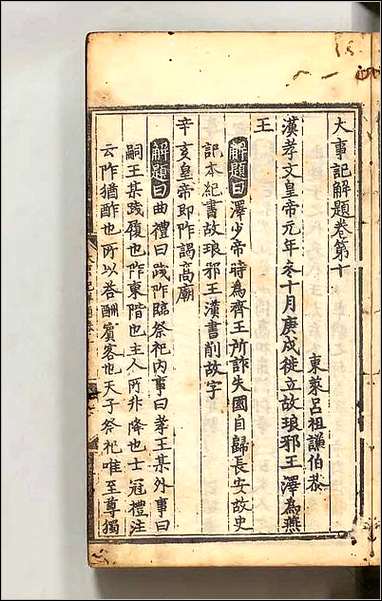 大事記解題卷第十
東萊呂祖謙伯恭
漢孝文皇帝元年冬十月庚戌徙立故琅邪王澤為燕
王
解題曰澤少帝時為齊王所詐失國自歸長安故史
記本紀書故琅邪王漢書削故字
辛亥皇帝即阼謁高廟
解題曰曲禮曰踐阼臨祭祀內事曰孝王某外事曰
嗣王某踐履也阼東階也主人所非降也士冠禮注
云阼猶酢也所以荅酬賓客也天子祭祀唯至尊獨